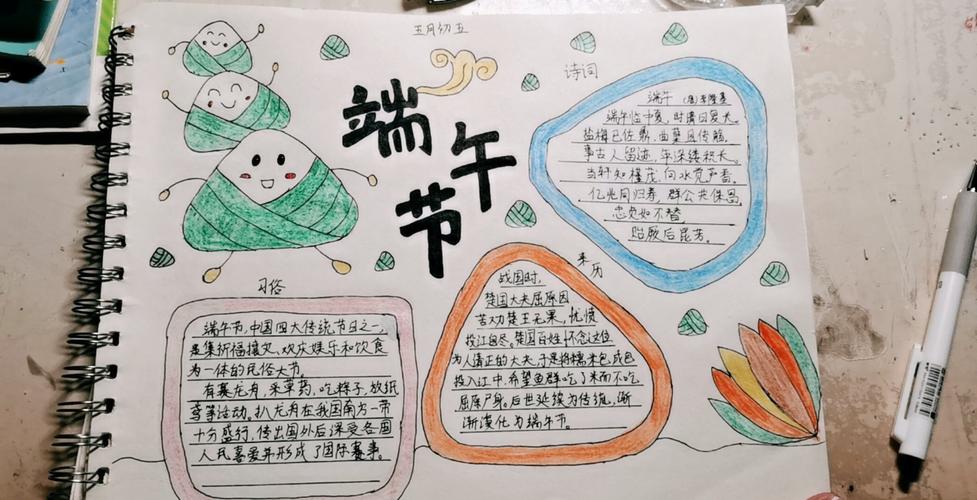 五月初五
端午节
诗词
端午 (唐)李隆基
端午临中夏，时清日复长。
盐梅已佐鼎，曲糵且传觞。
事古人留迹，年深缕积长。
当轩知槿茂，向水觉芦香。
亿兆同归寿，群公共保昌。
忠贞如不替，
贻厥后昆芳。
习俗
端午节，中国四大传统节日之一，
是集祈福攘灾、欢庆娱乐和饮食
为一体的民俗大节。
有赛龙舟，采草药，吃粽子，放纸
鸢等活动。扒龙舟在我国南方一带
十分盛行，传出国外后深受各国
人民喜爱并形成了国际赛事。
来历
战国时，
楚国大夫屈原因
苦劝楚王无果，忧愤
投江自尽。楚国百姓怀念这位
为人清正的大夫，于是将糯米包成包
投入江中，希望鱼群吃了米而不吃
屈原尸身。后世延续为传统，渐
渐演化为端午节。